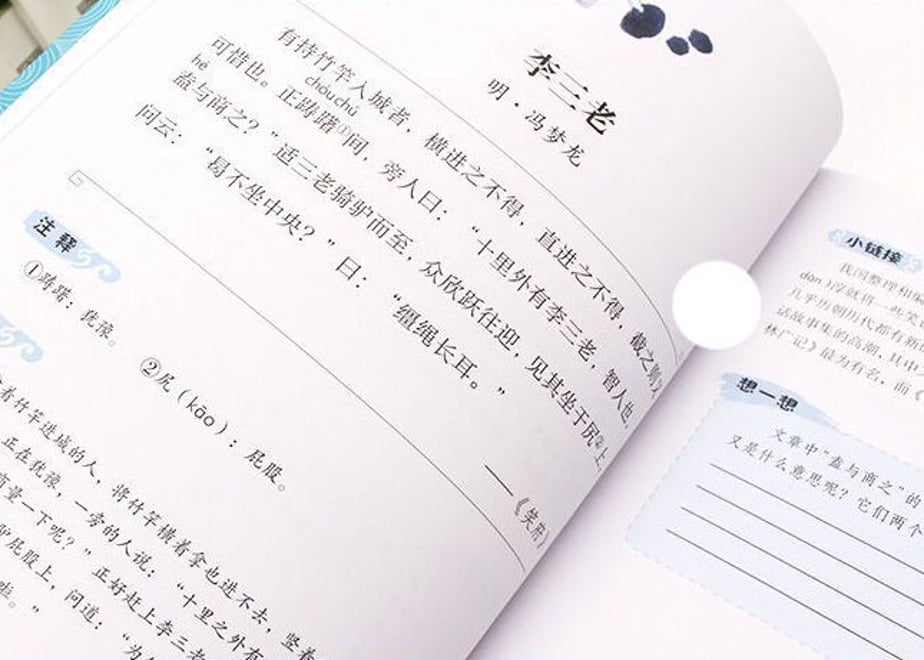 李三老
明·冯梦龙
有持竹竿入城者，横进之不得，直进之不得，截之则又
chóuchú
可惜也。正踌躇①间，旁人曰：“十里外有李三老，智人也，
hé
盍与商之？”适三老骑驴而至，众欣跃往迎，见其坐于尻②上，
问云：“曷不坐中央？”曰：“缰绳长耳。”
——《笑府》
注释
①踌躇：犹豫。 ②尻（kāo）：屁股。
着竹竿进城的人，将竹竿横着拿也进不去，竖着
正在犹豫，一旁的人说：“十里之外有
商量一下呢？”正好赶上李三老
驴屁股上，问道：“为
啦。”
小链接
我国整理和
dàn
淳就将一些笑
几乎历朝历代都有新
话故事集的高潮，其中
林广记》最为有名，而《
想一想
文章中“盍与商之”的
又是什么意思呢？它们两个